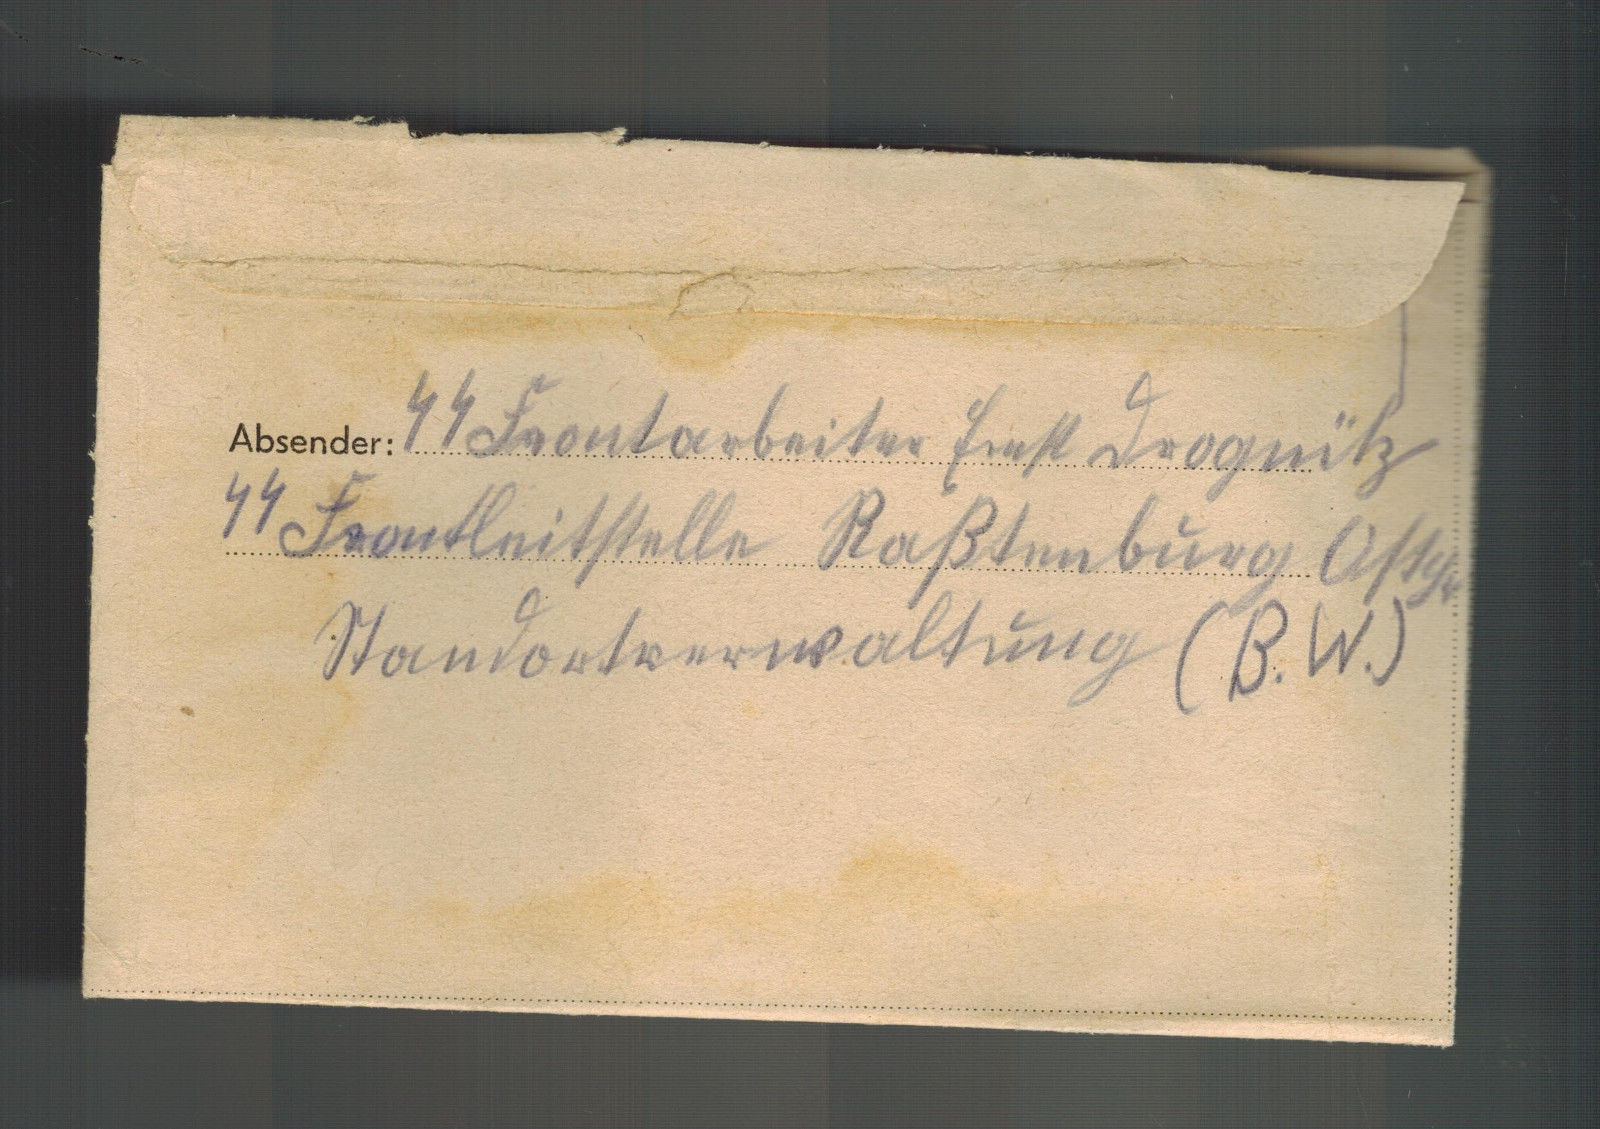 Absender: SS Frontarbeiter Ernst Drognitz
SS Frontleitstelle Raßtenburg Ostpr.
Standortverwaltung (B.W.)